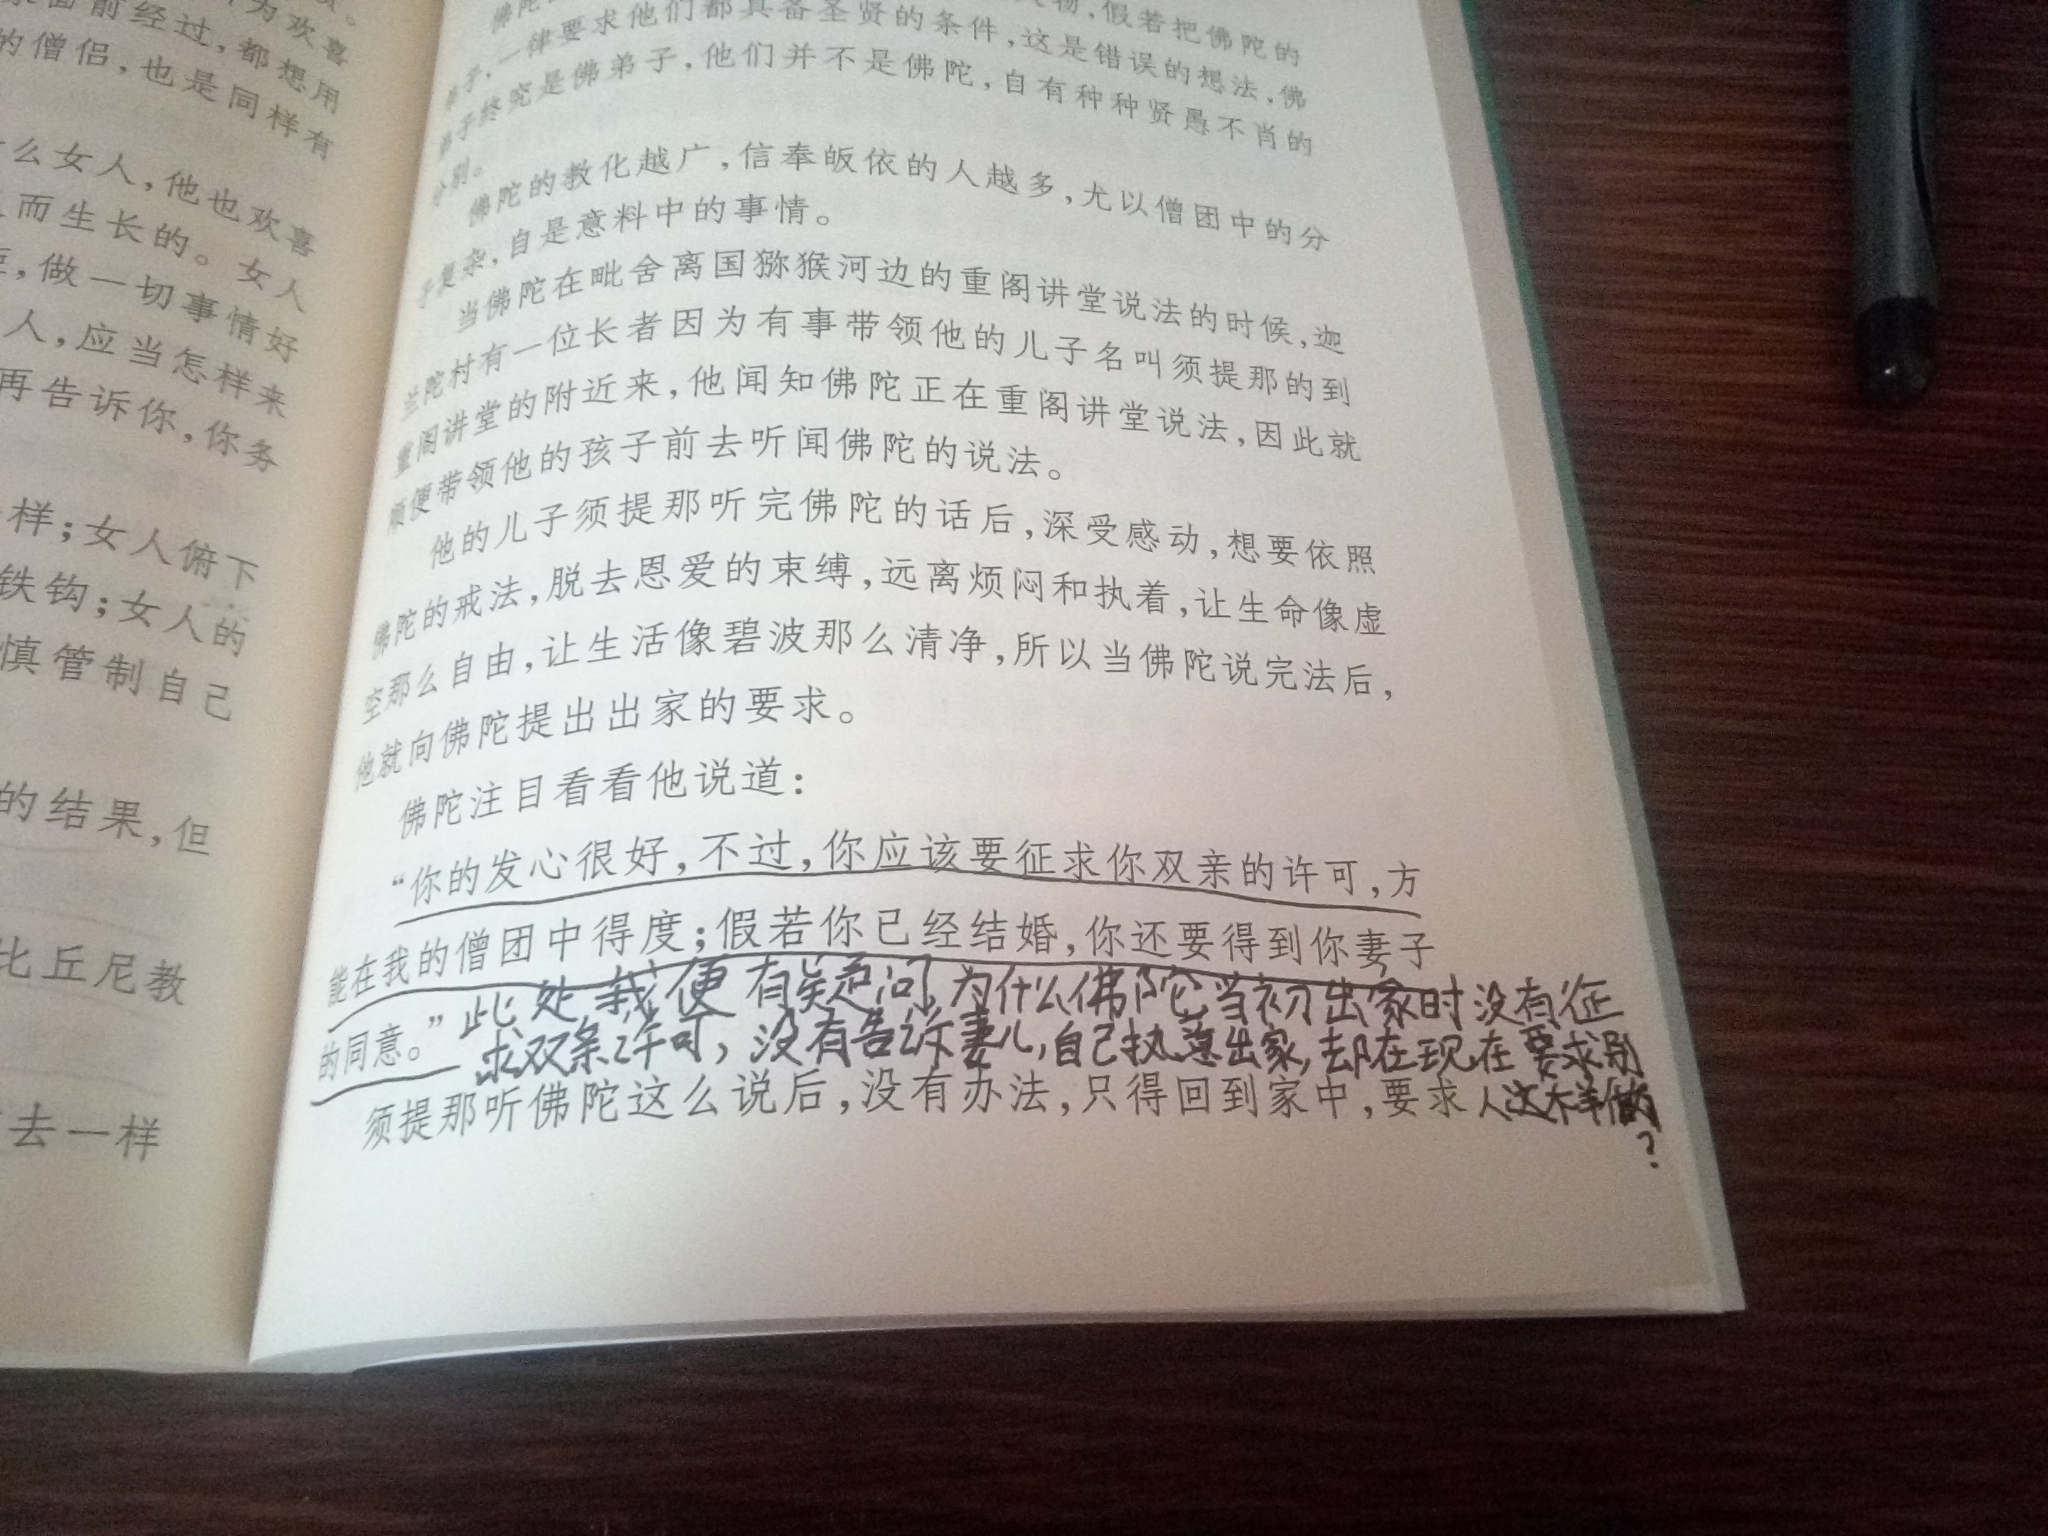 为欢喜
面前经过，都想用
的僧侣，也是同样有
么女人，他也欢喜
而生长的。女人
，做一切事情好
人，应当怎样来
再告诉你，你务
样；女人俯下
铁钩；女人的
慎管制自己
的结果，但
比丘尼教
去一样
佛陀
物，假若把佛陀的
弟子，一律要求他们都具备圣贤的条件，这是错误的想法，佛
弟子终究是佛弟子，他们并不是佛陀，自有种种贤愚不肖的
分别。
佛陀的教化越广，信奉皈依的人越多，尤以僧团中的分
子复杂，自是意料中的事情。
当佛陀在毗舍离国猕猴河边的重阁讲堂说法的时候，迦
兰陀村有一位长者因为有事带领他的儿子名叫须提那的到
重阁讲堂的附近来，他闻知佛陀正在重阁讲堂说法，因此就
顺便带领他的孩子前去听闻佛陀的说法。
他的儿子须提那听完佛陀的话后，深受感动，想要依照
佛陀的戒法，脱去恩爱的束缚，远离烦闷和执着，让生命像虚
空那么自由，让生活像碧波那么清净，所以当佛陀说完法后，
他就向佛陀提出出家的要求。
佛陀注目看看他说道：
“你的发心很好，不过，你应该要征求你双亲的许可，方
能在我的僧团中得度；假若你已经结婚，你还要得到你妻子
的同意。”
此处，我便有疑问，为什么佛陀当初出家时没有征
求双亲许可，没有告诉妻儿，自己执意出家，却在现在要求别
人这样做？
须提那听佛陀这么说后，没有办法，只得回到家中，要求